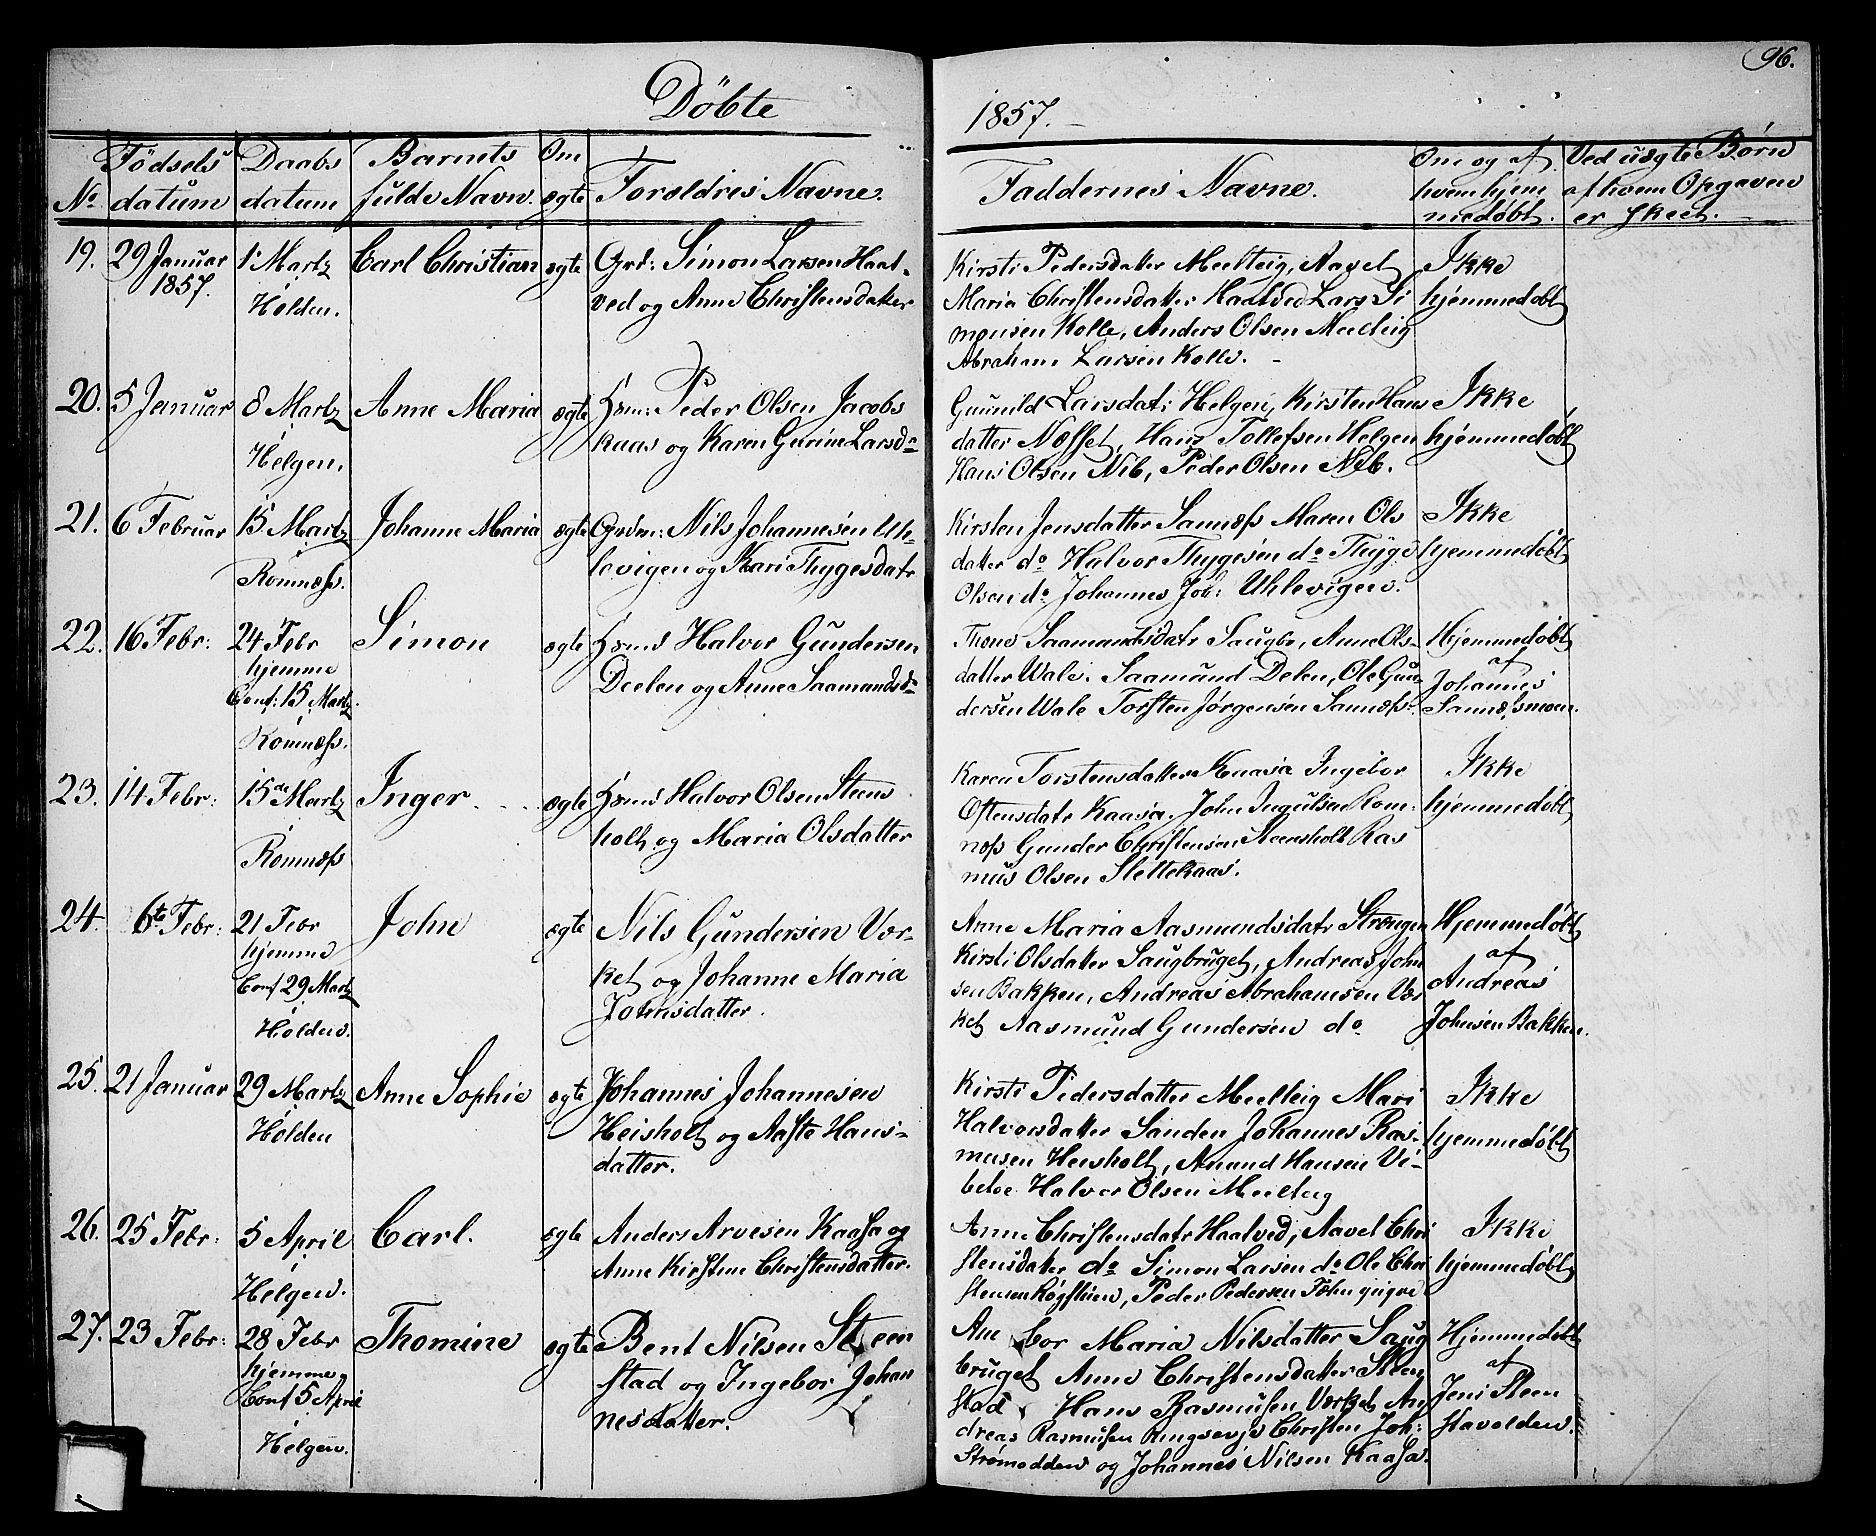 96.
Döbte
1857.
No
Födsels datum
Daabs datum
Barnets fulde Navn.
Om ægte
Forældres Navne.
Faddernes Navne.
Om og af hvem hjemmedøbt.
Ved uægte Børn af hvem Opgaven er skeet.
19.
29 Januar
1857.
1 Martz
i
Holden.
Carl Christian
ægte
Grd: Simon Larsen Haat-
ved og Anne Christensdatter
Kirsti Pedersdatter Meelteig, Aavel
Maria Christensdatter Haatved Lars Si
monsen Kolle, Anders Olsen Meelteig
Abraham Larsen Kolle.
Ikke
hjemmedøbt
20.
5 Januar
8 Martz
i
Helgen.
Anne Maria
ægte
Hsm: Peder Olsen Jacobs
kaas og Karen Gurine Larsd:
Gunnild Larsdat: Helgen, Kirsten Hans
datter Næsset, Hans Tollefsen Helgen
Hans Olsen Nib, Peder Olsen Nib.
Ikke
hjemmedøbt
21.
6 Februar
15 Martz
i
Romnæss.
Johanne Maria
ægte
Grdm: Nils Johannesen Uh-
levigen og Kari Thygesdatr
Kirsten Jensdatter Sannæss Maren Ols
datter do Halvor Thygesen do Thyge
Olsen do Johannes Joh: Uhlevigen.
Ikke
hjemmedøbt
22.
16 Febr:
24 Febr
hjemme
Conf: 15 Martz
i
Romnæss.
Simon
ægte
Hsmd Halvor Gundersen
Deelen og Anne Saamandsd:
Thone Saamandsdatr Saugbr, Anne Ols-
datter Wale. Saamund Delen, Ole Gun
dersen Wale Torsten Jørgensen Sannæss.
Hjemmedøbt
af
Johannes
Sannæsmoen.
23.
14 Febr:
15de Martz
i
Romnæss
Inger
ægte
Hsmd Halvor Olsen Steens
holt og Maria Olsdatter
Karen Torstensdatter Kaasa Ingebor
Ostensdatr Kaasa. John Ingulsen Rom-
næs Gunder Christensen Steensholt Ras
mus Olsen Slettekaas.
Ikke
hjemmedøbt
24.
6te Febr:
21 Febr
hjemme
Conf 29 Martz
i
Holden.
John
ægte
Nils Gundersen Vær-
ket og Johanne Maria
Johnsdatter.
Anne Maria Aasmundsdatr Strængen
Kirsti Olsdatter Saugbruget, Andreas John
sen Bakken, Andreas Abrahamsen Vær
ket Aasmund Gundersen do
Hjemmedøbt
af
Andreas
Johnsen Bakken.
25.
21 Januar
29 Martz
i
Holden
Anne Sophie
ægte
Johannes Johannesen
Heisholt og Aaste Hans-
datter.
Kirsti Pedersdatter Meelteig Mari
Halvorsdatter Sanden Johannes Ras-
musen Heisholt, Amund Hansen Vi-
betoe Halvor Olsen Meelteig
Ikke
hjemmedøbt
26.
25 Febr:
5 April
i
Helgen.
Carl.
ægte
Anders Arvesen Kaasa og
Anne Kirstine Christensdatter.
Anne Christensdatr Haatved, Aavel Chri
stensdatter do Simon Larsen do Ole Chri
stensen Røgstien, Peder Pedersen
Ikke
hjemmedøbt
27.
23 Febr:
28 Febr
hjemme,
Conf 5 April
i
Helgen.
Thomine
ægte
Bent Nilsen Steen
stad og Ingebor Johan
nesdatter.
bor Maria Nilsdatter Saug
bruget Anne Christensdatter Steen
stad Hans Rasmusen Værket An
dreas Rasmusen Ringsevje Christen Joh:
Strømodden og Johannes Nilsen Kaasa.
Hjemmedøbt
af
Jens Steen
stavolden.